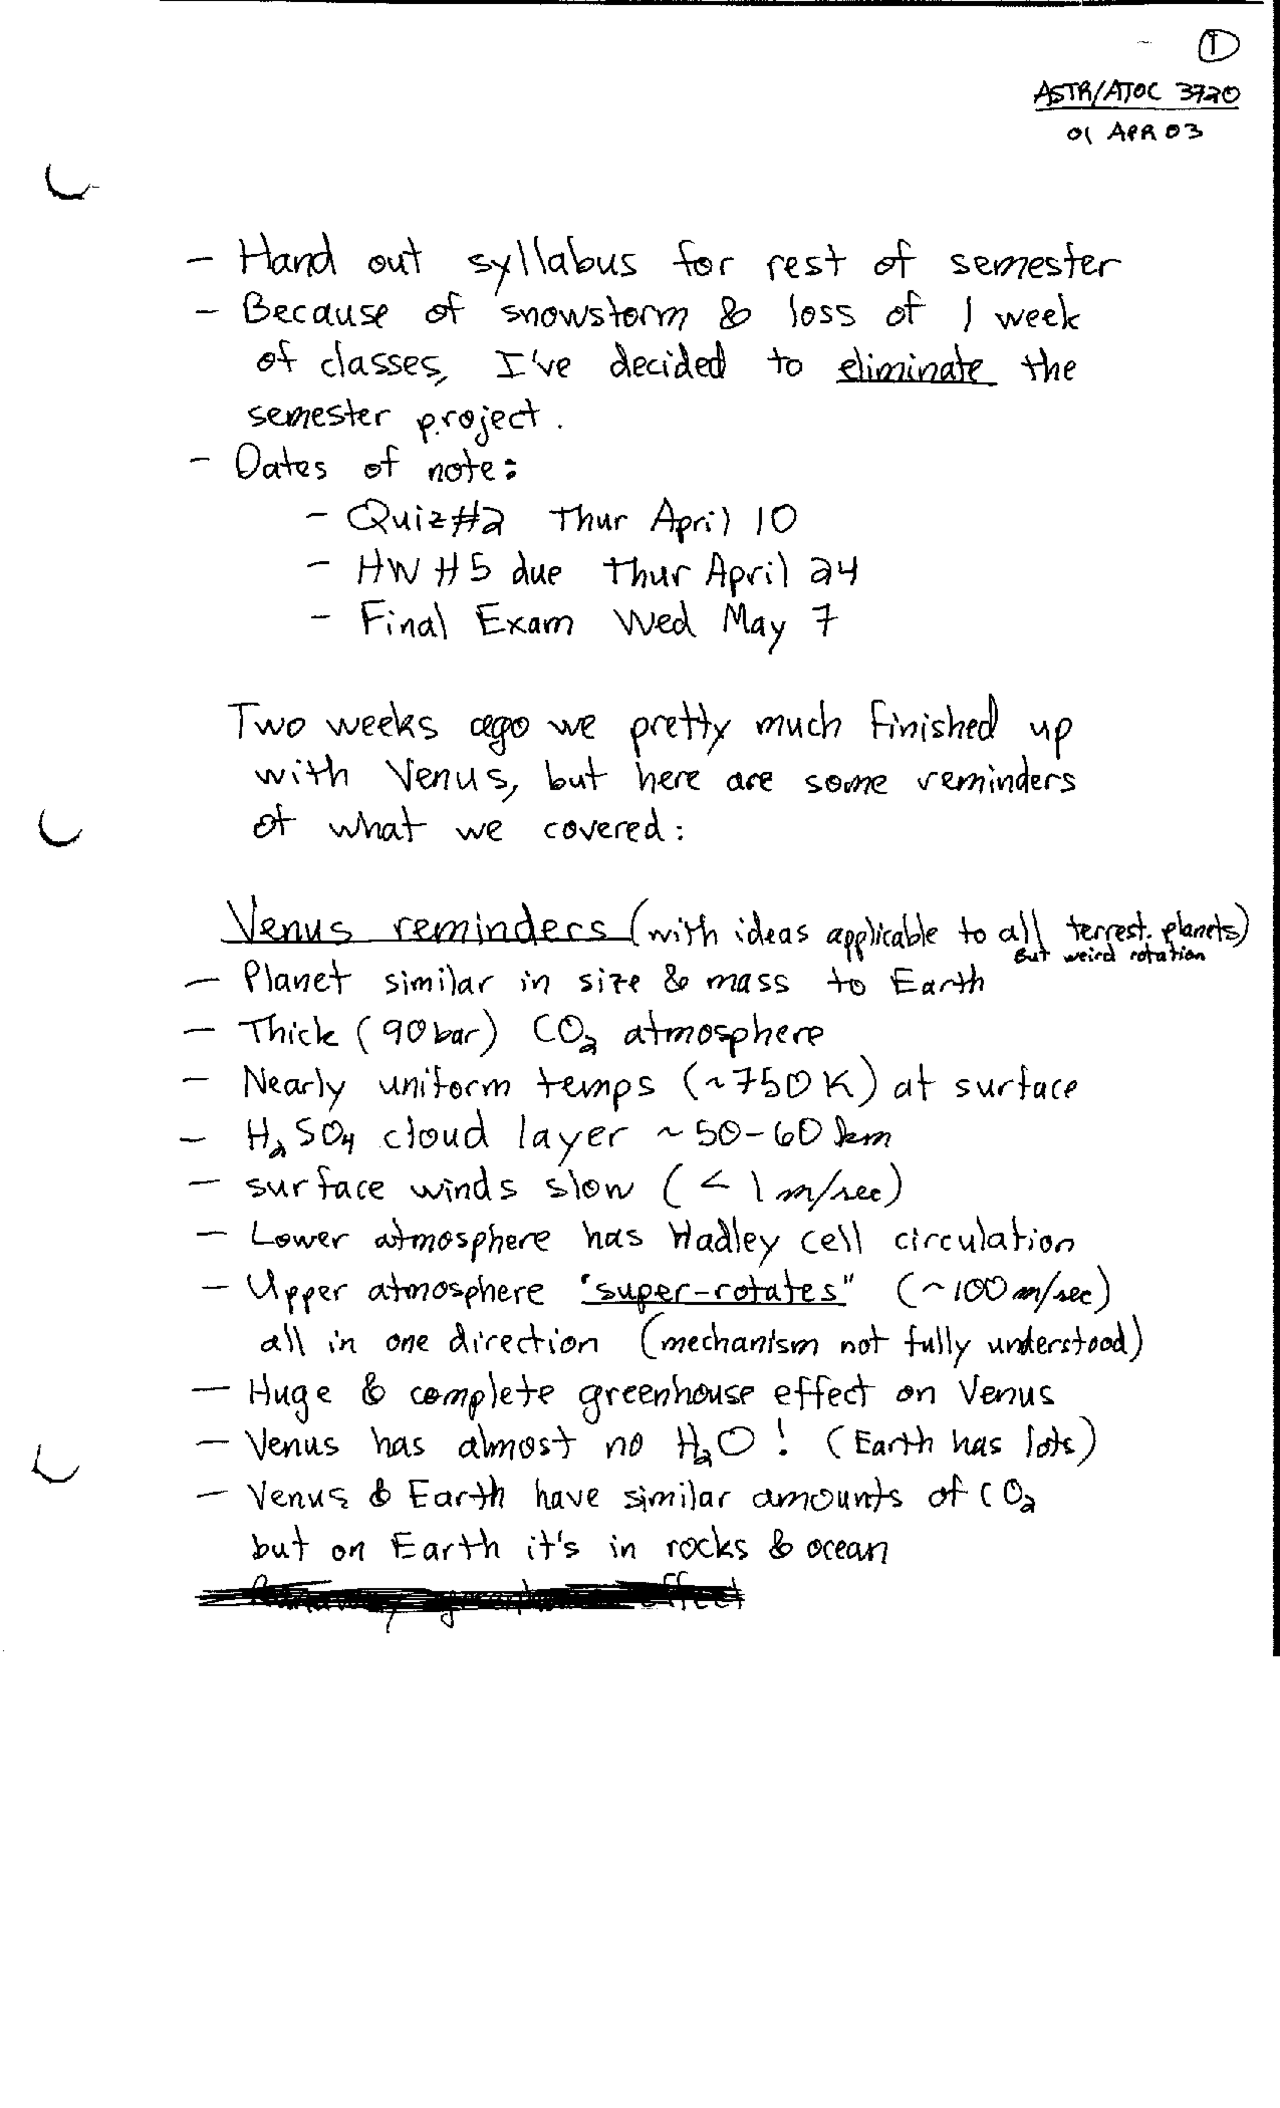 ①
ASTR/ATOC 3720
01 APR 03
- Hand out syllabus for rest of semester
- Because of snowstorm & loss of 1 week
of classes, I've decided to eliminate the
semester project.
- Dates of note:
- Quiz #2 Thur April 10
- HW #5 due Thur April 24
- Final Exam Wed May 7
Two weeks ago we pretty much finished up
with Venus, but here are some reminders
of what we covered:
Venus reminders (with ideas applicable to all terrest. planets)
but weird rotation
- Planet similar in size & mass to Earth
- Thick (90 bar) CO₂ atmosphere
- Nearly uniform temps (~750 K) at surface
- H₂SO₄ cloud layer ~ 50-60 km
- surface winds slow (< 1 m/sec)
- Lower atmosphere has Hadley cell circulation
- Upper atmosphere "super-rotates" (~100 m/sec)
all in one direction (mechanism not fully understood)
- Huge & complete greenhouse effect on Venus
- Venus has almost no H₂O! (Earth has lots)
- Venus & Earth have similar amounts of CO₂
but on Earth it's in rocks & ocean
effect